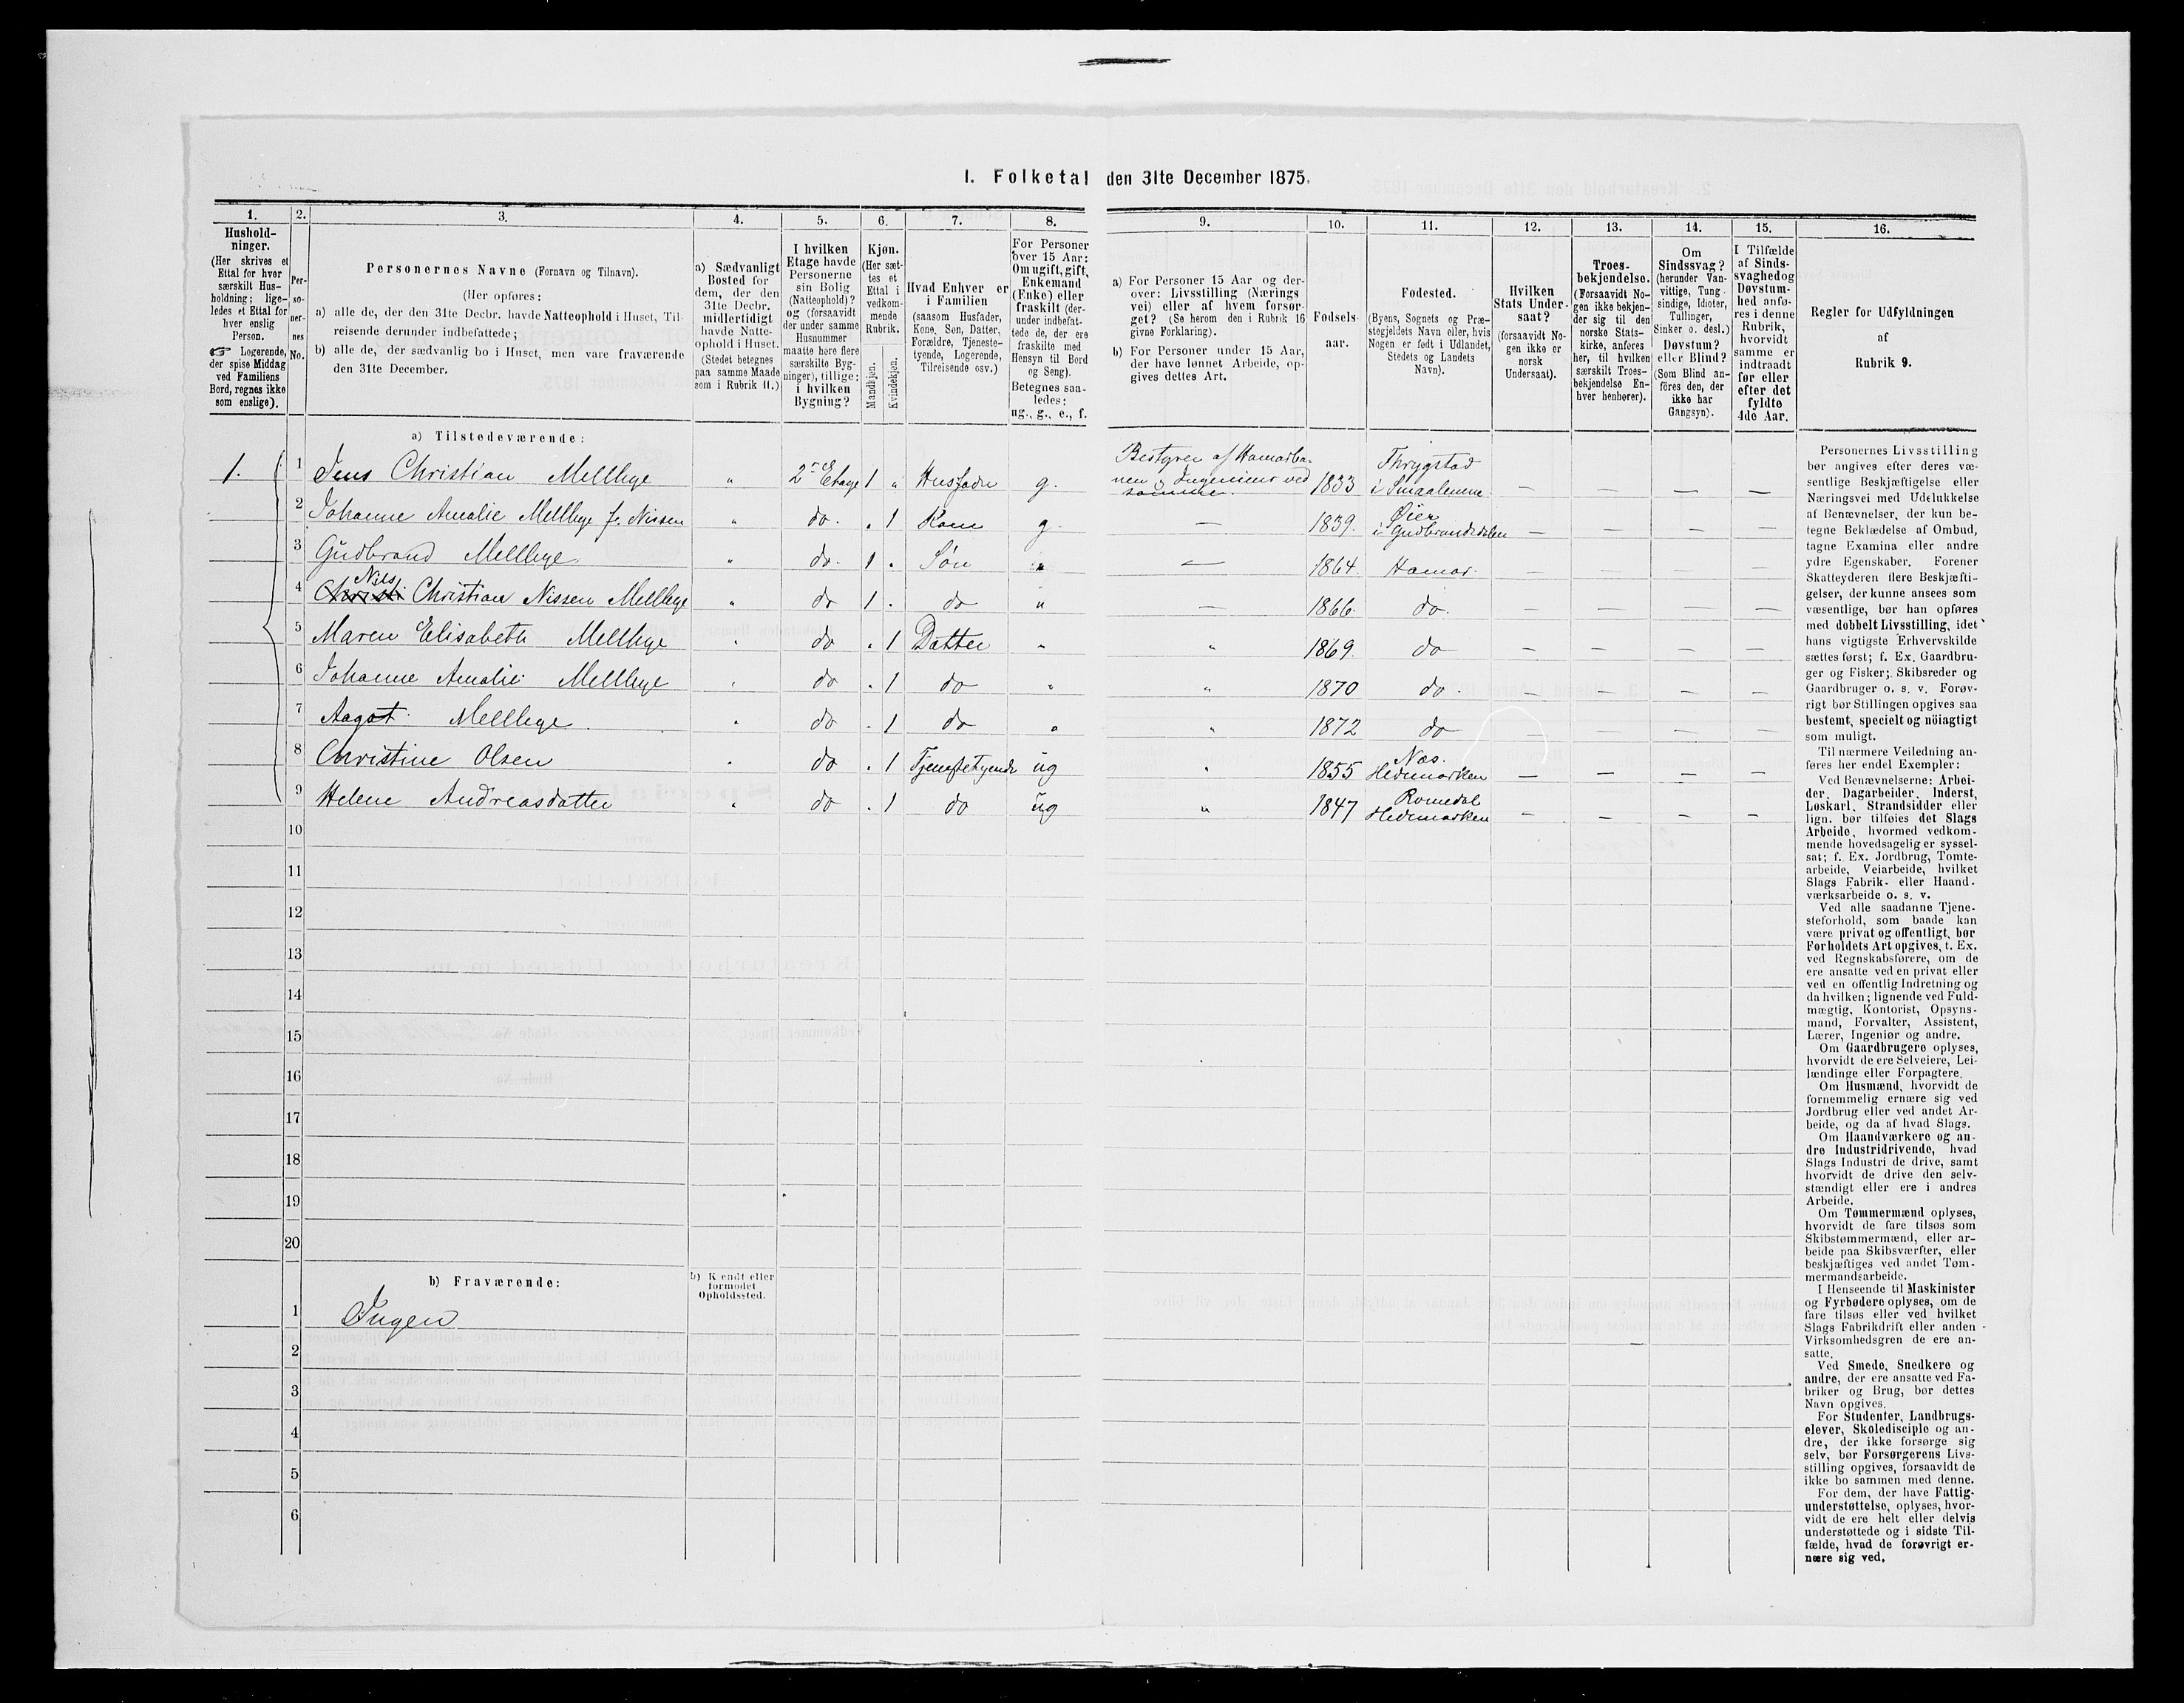 I. Folketal den 31te December 1875.
1.
Hushold-
ninger.
(Her skrives et
Ettal for hver
særskilt Hus-
holdning; lige-
ledes et Ettal for
hver enslig
Person.
☞ Logerende,
der spise Middag
ved Familiens
Bord, regnes ikke
som enslige).
2.
Per-
so-
ner-
nes
No.
3.
Personernes Navne (Fornavn og Tilnavn).
(Her opføres:
a) alle de, der den 31te Decbr. havde Natteophold i Huset, Til-
reisende derunder indbefattede;
b) alle de, der sædvanlig bo i Huset, men vare fraværende
den 31te December.
4.
a) Sædvanligt
Bosted for
dem, der den
31te Decbr.
midlertidigt
havde Natte-
ophold i Huset.
(Stedet betegnes
paa samme Maade
som i Rubrik 11.)
5.
I hvilken
Etage havde
Personerne
sin Bolig
(Natteophold)?
og (forsaavidt
der under samme
Husnummer
maatte høre flere
særskilte Byg-
ninger), tillige:
i hvilken
Bygning?
6.
Kjøn.
(Her sæt-
tes et
Ettal i
vedkom-
mende
Rubrik.
Mandkjøn.
Kvindekjøn.
7.
Hvad Enhver er
i Familien
(saasom Husfader,
Kone, Søn, Datter,
Forældre, Tjeneste-
tyende, Logerende,
Tilreisende osv.)
8.
For Personer
over 15 Aar:
Om ugift, gift,
Enkemand
(Enke) eller
fraskilt (der-
under indbefat-
tede de, der ere
fraskilte med
Hensyn til Bord
og Seng).
Betegnes saa-
ledes:
ug., g., e., f.
9.
a) For Personer 15 Aar og der-
over: Livsstilling (Nærings
vei) eller af hvem forsør-
get? (Se herom den i Rubrik 16
givne Forklaring).
b) For Personer under 15 Aar,
der have lønnet Arbeide, op-
gives dettes Art.
10.
Fødsels-
aar.
11.
Fødested.
(Byens, Sognets og Præ-
stegjeldets Navn eller, hvis
Nogen er født i Udlandet,
Stedets og Landets
Navn).
12.
Hvilken
Stats Under-
saat?
(forsaavidt No-
gen ikke er
norsk
Undersaat).
13.
Troes-
bekjendelse.
(Forsaavidt No-
gen ikke bekjen-
der sig til den
norske Stats-
kirke, anføres
her, til hvilken
særskilt Troes-
bekjendelse En-
hver henhører).
14.
Om
Sindssvag?
(herunder Van-
vittige, Tung-
sindige, Idioter,
Tullinger,
Sinker o. desl.)
Døvstum?
eller Blind?
(Som Blind an-
føres den, der
ikke har
Gangsyn).
15.
I Tilfælde
af Sinds-
svaghed og
Døvstum-
hed anfø-
res i denne
Rubrik,
hvorvidt
samme er
indtraadt
før eller
efter det
fyldte
4de Aar.
16.
Regler for Udfyldningen
af
Rubrik 9.
a) Tilstedeværende:
1. 1 Jens Christian Mellbye " 2den Etage 1 " Husfader g. Bestyrer af Hamarba-
nen og Ingeniør ved
samme. 1833 Thrygstad
i Smaalenene. — — — —
2 Johanne Amalie Mellbye f. Nissen " do. . 1 Kone g. — 1839. Øier
i Gudbrandsdalen — — — —
3 Gudbrand Mellbye. " do. 1 . Søn " — 1864. Hamar. — — — —
4 Christi Nils Christian Nissen Mellbye " do 1 . do " — 1866. do. — — — —
5 Maren Elisabeth Mellbye " do . 1 Datter " " 1869. do — — — —
6 Johanne Amalie Mellbye " do . 1 do " " 1870 do. — — — —
7 Aagot Mellbye. " do . 1 do " " 1872 do — — — —
8 Christine Olsen " do . 1 Tjenestetyende ug " 1855 Næs.
Hedemarken — — — —
9 Helene Andreasdatter " do . 1 do ug " 1847 Romedal
Hedemarken — — — —
10
11
12
13
14
15
16
17
18
19
20
b) Fraværende:
b) Kendt eller
formodet
Opholdssted.
1 Ingen
2
3
4
5
6
Personernes Livsstilling
bør angives efter deres væ-
sentlige Beskjæftigelse eller
Næringsvei med Udelukkelse
af Benævnelser, der kun be-
tegne Beklædelse af Ombud,
tagne Examina eller andre
ydre Egenskaber. Forener
Skatteyderen flere Beskjæfti-
gelser, der kunne ansees som
væsentlige, bør han opføres
med dobbelt Livsstilling, idet
hans vigtigste Erhvervskilde
sættes først; f. Ex. Gaardbru-
ger og Fisker; Skibsreder og
Gaardbruger o. s. v. Forøv-
rigt bør Stillingen opgives saa
bestemt, specielt og nöiagtigt
som muligt.
Til nærmere Veiledning an-
føres her endel Exempler:
Ved Benævnelserne: Arbei-
der, Dagarbeider, Inderst,
Løskarl, Strandsidder eller
lign. bør tilføies det Slags
Arbeide, hvormed vedkom-
mende hovedsagelig er syssel-
sat; f. Ex. Jordbrug, Tomte-
arbeide, Veiarbeide, hvilket
Slags Fabrik- eller Haand-
værksarbeide o. s. v.
Ved alle saadanne Tjene-
steforhold, som baade kan
være privat og offentligt, bør
Forholdets Art opgives, t. Ex.
ved Regnskabsførere, om de
ere ansatte ved en privat eller
ved en offentlig Indretning og
da hvilken; lignende ved Fuld-
mægtig, Kontorist, Opsyns-
mand, Forvalter, Assistent,
Lærer, Ingeniør og andre.
Om Gaardbrugere oplyses,
hvorvidt de ere Selveiere, Lei-
lændinge eller Forpagtere.
Om Husmænd, hvorvidt de
fornemmelig ernære sig ved
Jordbrug eller ved andet Ar-
beide, og da af hvad Slags.
Om Haandværkere og an-
dre Industridrivende, hvad
Slags Industri de drive, samt
hvorvidt de drive den selv-
stændigt eller ere i andres
Arbeide.
Om Tømmermænd oplyses,
hvorvidt de fare tilsøs som
Skibstømmermænd, eller ar-
beide paa Skibsværfter, eller
beskjæftiges ved andet Tøm-
mermandsarbeide.
I Henseende til Maskinister
og Fyrbødere oplyses, om de
fare tilsøs eller ved hvilket
Slags Fabrikdrift eller anden
Virksomhedsgren de ere an-
satte.
Ved Smede, Snedkere og
andre, der ere ansatte ved Fa-
briker og Brug, bør dettes
Navn opgives.
For Studenter, Landbrugs-
elever, Skoledisciple og an-
dre, der ikke forsørge sig
selv, bør Forsørgerens Livs-
stilling opgives, forsaavidt de
ikke bo sammen med denne.
For dem, der have Fattig-
understøttelse, oplyses, hvor-
vidt de ere helt eller delvis
understøttede og i sidste Til-
fælde, hvad de forøvrigt er-
nære sig ved.